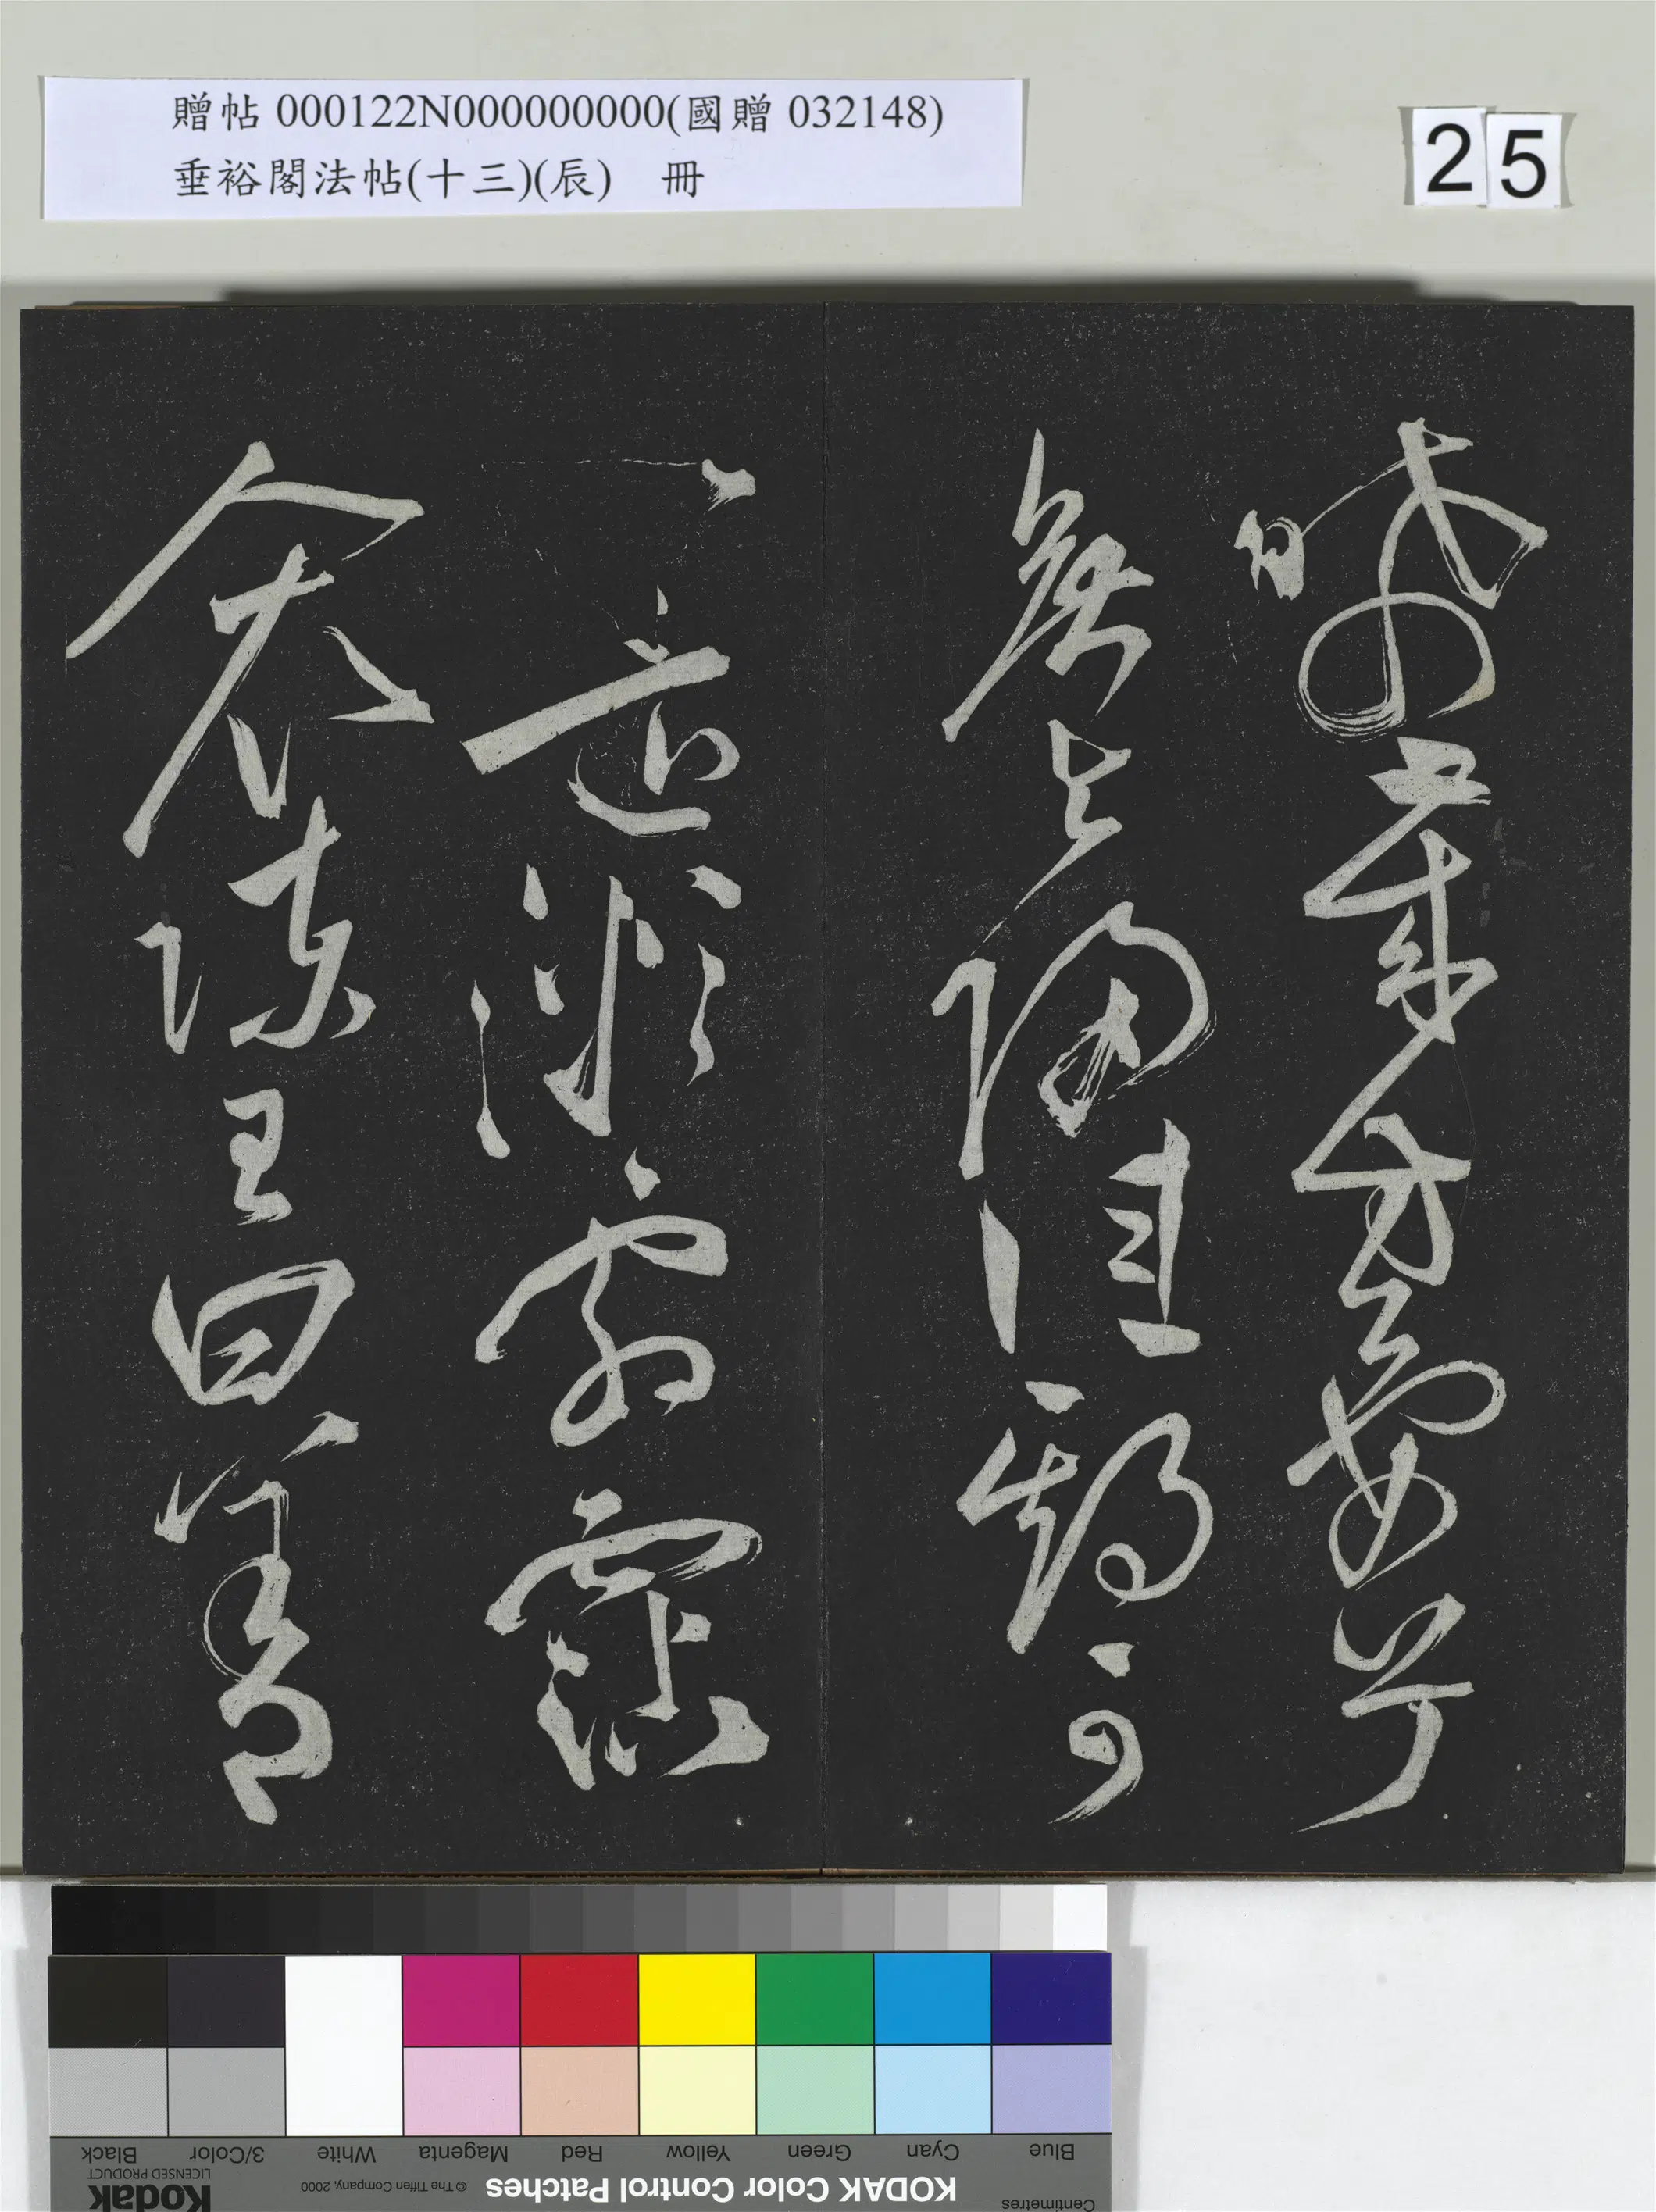 贈帖 000122N000000000(國贈 032148)
垂裕閣法帖(十三)(辰) 冊
25
晞歲方晏兮
無與歸佳期可
以還微霜霑
人衣陳王曰善
Blue Cyan Green Yellow Red Magenta White 3/Color Black
Centimetres
KODAK Color Control Patches
© The Tiffen Company, 2000
Kodak
LICENSED PRODUCT